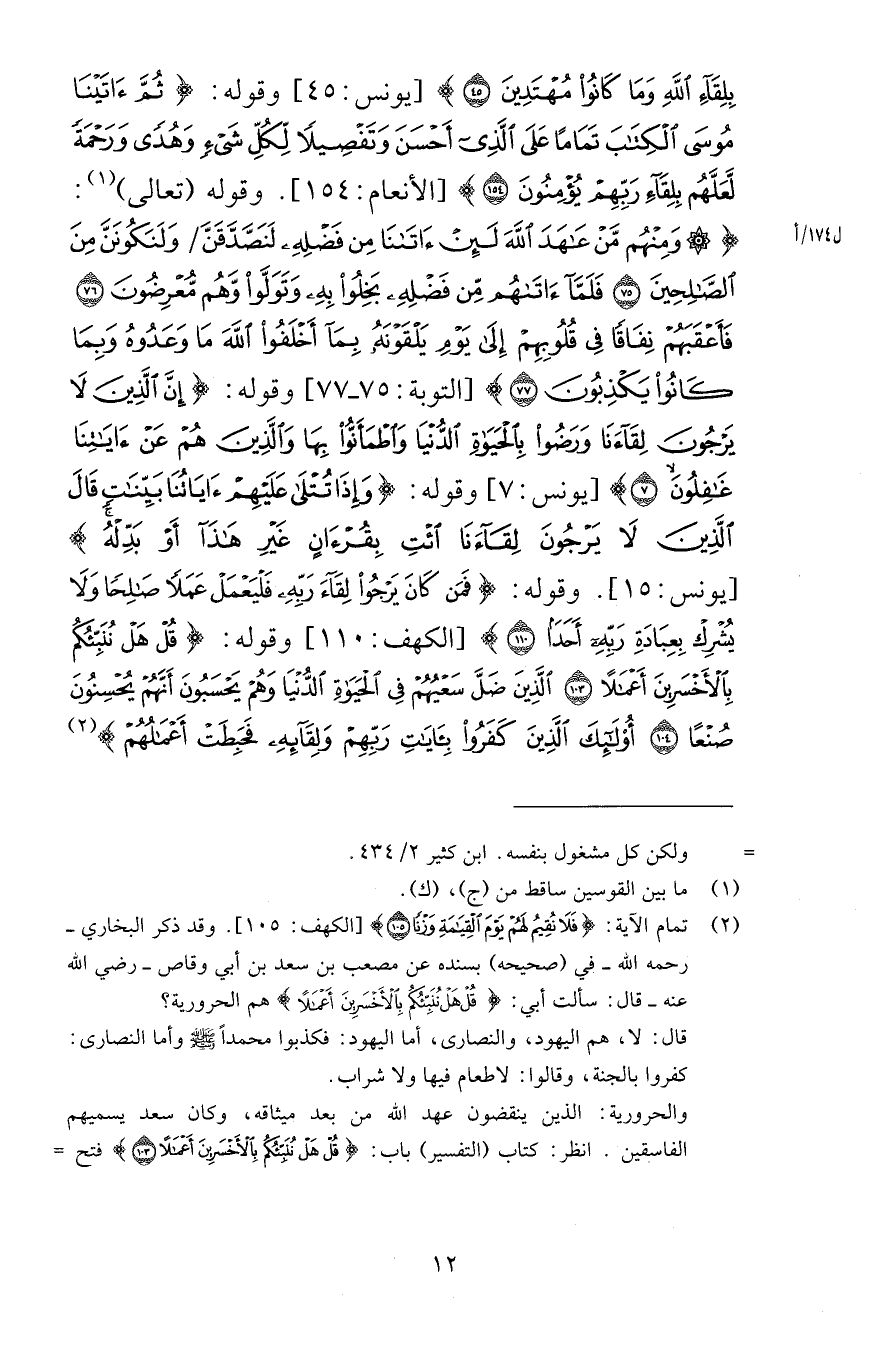 بِلِقَآءِ ٱللَّهِ وَمَا كَانُوا۟ مُهْتَدِينَ ٤٥ ﴾ [يونس: ٤٥] وقوله: ﴿ ثُمَّ ءَاتَيْنَا
مُوسَى ٱلْكِتَٰبَ تَمَامًا عَلَى ٱلَّذِىٓ أَحْسَنَ وَتَفْصِيلًا لِّكُلِّ شَىْءٍ وَهُدًى وَرَحْمَةً
لَّعَلَّهُم بِلِقَآءِ رَبِّهِمْ يُؤْمِنُونَ ١٥٤ ﴾ [الأنعام: ١٥٤]. وقوله (تعالى)(١):
﴿ ۞ وَمِنْهُم مَّنْ عَٰهَدَ ٱللَّهَ لَئِنْ ءَاتَىٰنَا مِن فَضْلِهِۦ لَنَصَّدَّقَنَّ/ وَلَنَكُونَنَّ مِنَ
ل١٧٤/أ
ٱلصَّٰلِحِينَ ٧٥ فَلَمَّآ ءَاتَىٰهُم مِّن فَضْلِهِۦ بَخِلُوا۟ بِهِۦ وَتَوَلَّوا۟ وَّهُم مُّعْرِضُونَ ٧٦
فَأَعْقَبَهُمْ نِفَاقًا فِى قُلُوبِهِمْ إِلَىٰ يَوْمِ يَلْقَوْنَهُۥ بِمَآ أَخْلَفُوا۟ ٱللَّهَ مَا وَعَدُوهُ وَبِمَا
كَانُوا۟ يَكْذِبُونَ ٧٧ ﴾ [التوبة: ٧٥ـ٧٧] وقوله: ﴿ إِنَّ ٱلَّذِينَ لَا
يَرْجُونَ لِقَآءَنَا وَرَضُوا۟ بِٱلْحَيَوٰةِ ٱلدُّنْيَا وَٱطْمَأَنُّوا۟ بِهَا وَٱلَّذِينَ هُمْ عَنْ ءَايَٰتِنَا
غَٰفِلُونَ ٧ ﴾ [يونس: ٧] وقوله: ﴿ وَإِذَا تُتْلَىٰ عَلَيْهِمْ ءَايَاتُنَا بَيِّنَٰتٍ قَالَ
ٱلَّذِينَ لَا يَرْجُونَ لِقَآءَنَا ٱئْتِ بِقُرْءَانٍ غَيْرِ هَٰذَآ أَوْ بَدِّلْهُ ﴾
[يونس: ١٥]. وقوله: ﴿ فَمَن كَانَ يَرْجُوا۟ لِقَآءَ رَبِّهِۦ فَلْيَعْمَلْ عَمَلًا صَٰلِحًا وَلَا
يُشْرِكْ بِعِبَادَةِ رَبِّهِۦٓ أَحَدًۢا ١١٠ ﴾ [الكهف: ١١٠] وقوله: ﴿ قُلْ هَلْ نُنَبِّئُكُم
بِٱلْأَخْسَرِينَ أَعْمَٰلًا ١٠٣ ٱلَّذِينَ ضَلَّ سَعْيُهُمْ فِى ٱلْحَيَوٰةِ ٱلدُّنْيَا وَهُمْ يَحْسَبُونَ أَنَّهُمْ يُحْسِنُونَ
صُنْعًا ١٠٤ أُو۟لَٰٓئِكَ ٱلَّذِينَ كَفَرُوا۟ بِـَٔايَٰتِ رَبِّهِمْ وَلِقَآئِهِۦ فَحَبِطَتْ أَعْمَٰلُهُمْ ﴾(٢)
= ولكن كل مشغول بنفسه. ابن كثير ٢/ ٤٣٤.
(١) ما بين القوسين ساقط من (ج)، (ك).
(٢) تمام الآية: ﴿ فَلَا نُقِيمُ لَهُمْ يَوْمَ ٱلْقِيَٰمَةِ وَزْنًا ١٠٥ ﴾ [الكهف: ١٠٥]. وقد ذكر البخاري ـ
رحمه الله ـ في (صحيحه) بسنده عن مصعب بن سعد بن أبي وقاص ـ رضي الله
عنه ـ قال: سألت أبي: ﴿ قُلْ هَلْ نُنَبِّئُكُم بِٱلْأَخْسَرِينَ أَعْمَٰلًا ﴾ هم الحرورية؟
قال: لا، هم اليهود، والنصارى، أما اليهود: فكذبوا محمداً ﷺ وأما النصارى:
كفروا بالجنة، وقالوا: لاطعام فيها ولا شراب.
والحرورية: الذين ينقضون عهد الله من بعد ميثاقه، وكان سعد يسميهم
الفاسقين . انظر: كتاب (التفسير) باب: ﴿ قُلْ هَلْ نُنَبِّئُكُم بِٱلْأَخْسَرِينَ أَعْمَٰلًا ١٠٣ ﴾ فتح =
١٢